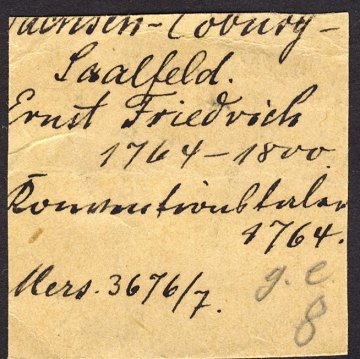 Sachsen-Coburg-
Saalfeld.
Ernst Friedrich
1764-1800.
Konventionstaler
1764.
Mers. 3676/7. g. e.
8